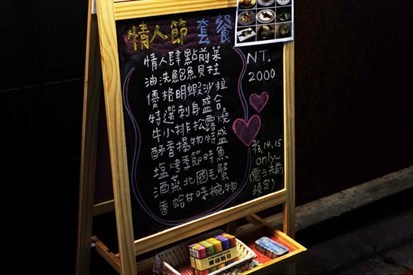 情人節 套餐
情人肆點前菜
油洗鮑魚貝柱
優格明蝦沙拉
特選刺身盛合
牛小排松露燒
酥香揚物特盛
塩烤季節時魚
酒蒸北國毛蟹
香蛤甘味椀物
NT.
2000
only~
預定)